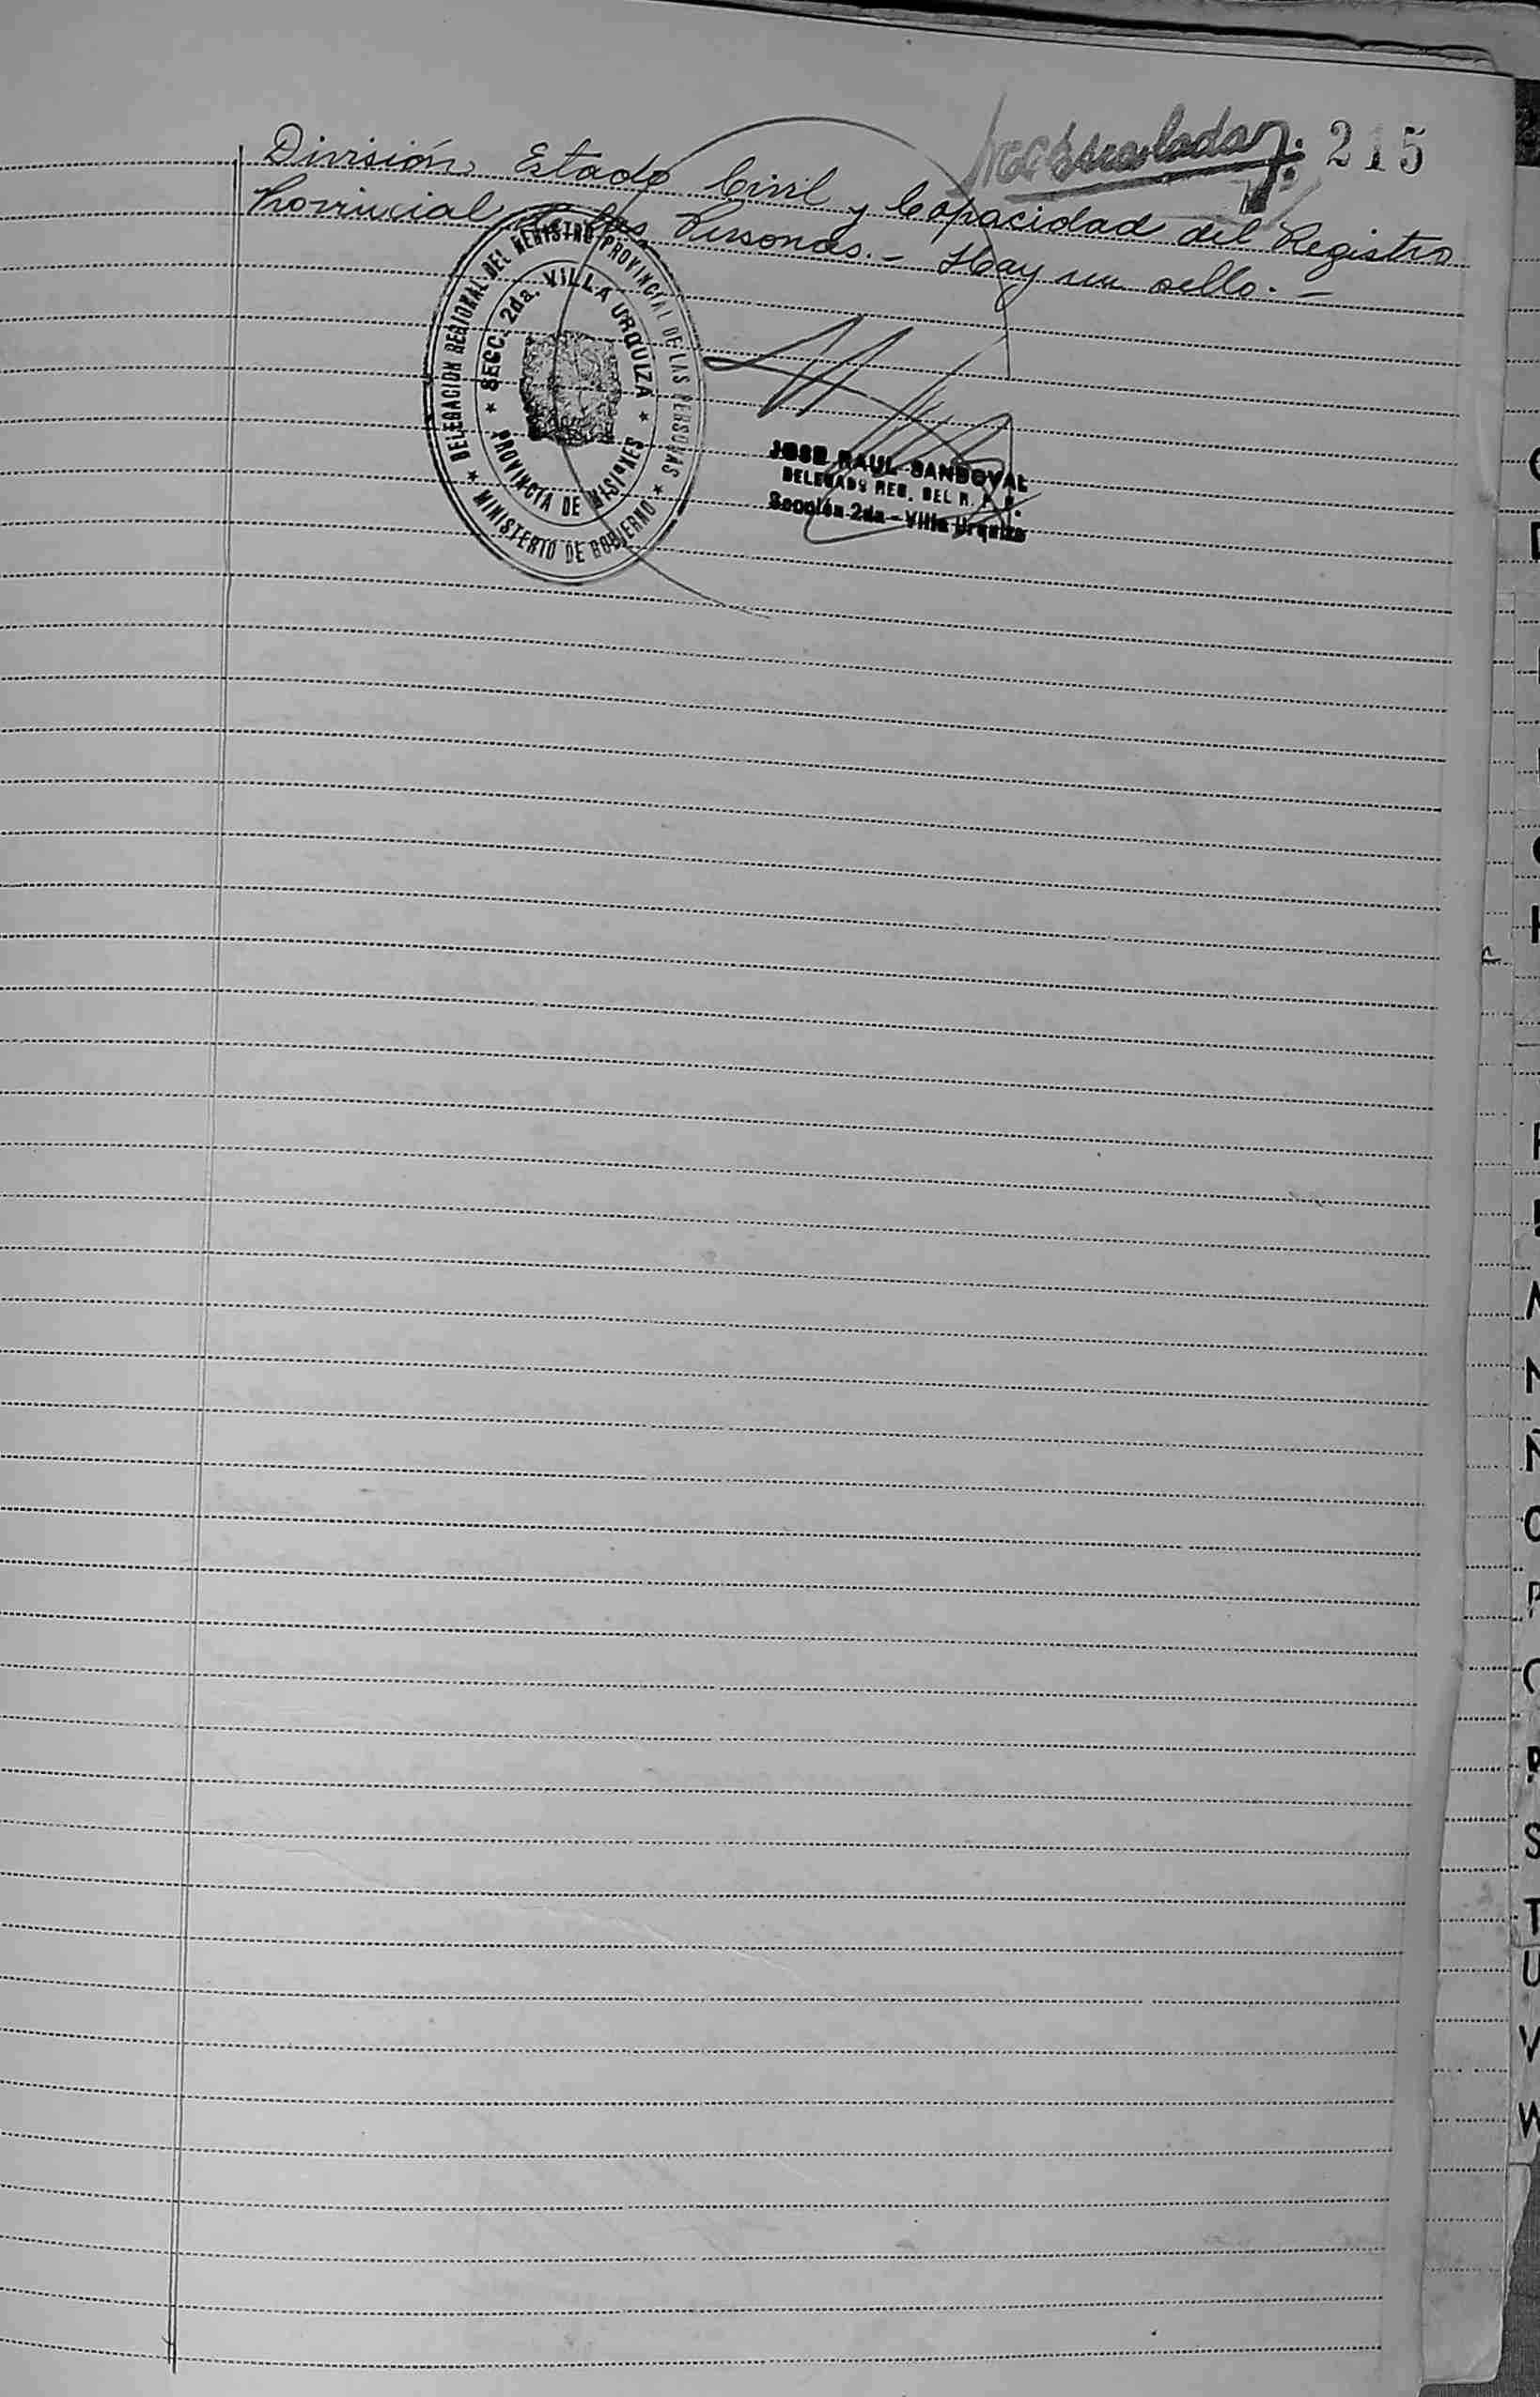 215
División Estado Civil y Capacidad del Registro
Provincial de las Personas.- Hay un sello.-
DELEGACION REGIONAL DEL REGISTRO PROVINCIAL DE LAS PERSONAS
★ MINISTERIO DE GOBIERNO ★
★ SECC. 2da. VILLA URQUIZA ★
PROVINCIA DE MISIONES
JOSE RAUL SANDOVAL
DELEGADO REG. DEL R. P. P.
Sección 2da - Villa Urquiza
H
N
Ñ
O
P
Q
R
S
T
U
V
W